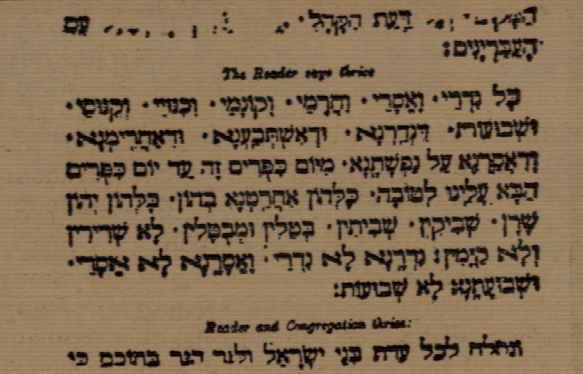 דַּעַת הַקָּהָל · עִם
הָעֲבַרְיָנִים:
The Reader says thrice
כָּל נִדְרֵי · וֶאֱסָרֵי · וַחֲרָמֵי · וְקוֹנָמֵי · וְכִנּוּיֵי · וְקִנּוּסֵי ·
וּשְׁבוּעוֹת · דִּנְדַרְנָא · וּדְאִשְׁתְּבַעְנָא · וּדְאַחֲרִימְנָא ·
וְדַאֲסַרְנָא עַל נַפְשָׁתָנָא · מִיּוֹם כִּפֻּרִים זֶה עַד יוֹם כִּפֻּרִים
הַבָּא עָלֵינוּ לְטוֹבָה · כֻּלְּהוֹן אִחֲרַטְנָא בְהוֹן · כֻּלְּהוֹן יְהוֹן
שָׁרָן · שְׁבִיקִין · שְׁבִיתִין · בְּטֵלִין וּמְבֻטָּלִין · לָא שְׁרִירִין
וְלָא קַיָּמִין: נִדְרָנָא לָא נִדְרֵי · וֶאֱסָרָנָא לָא אֱסָרֵי ·
וּשְׁבוּעָתָנָא לָא שְׁבוּעוֹת:
Reader and Congregation thrice:
וְנִסְלַח לְכָל עֲדַת בְּנֵי יִשְׂרָאֵל וְלַגֵּר הַגָּר בְּתוֹכָם כִּי